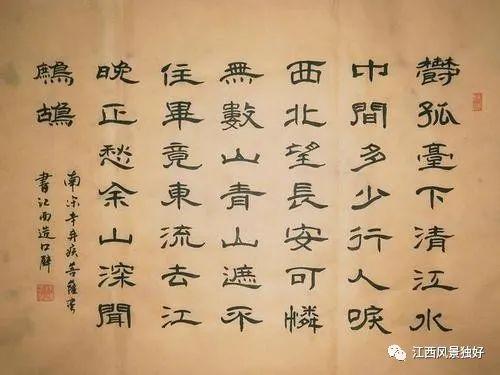 鬱孤臺下清江水
中間多少行人淚
西北望長安可憐
無數山青山遮不
住畢竟東流去江
晚正愁余山深聞
鷓鴣
南宋辛弃疾菩薩蠻
書江西造口壁
江西风景独好